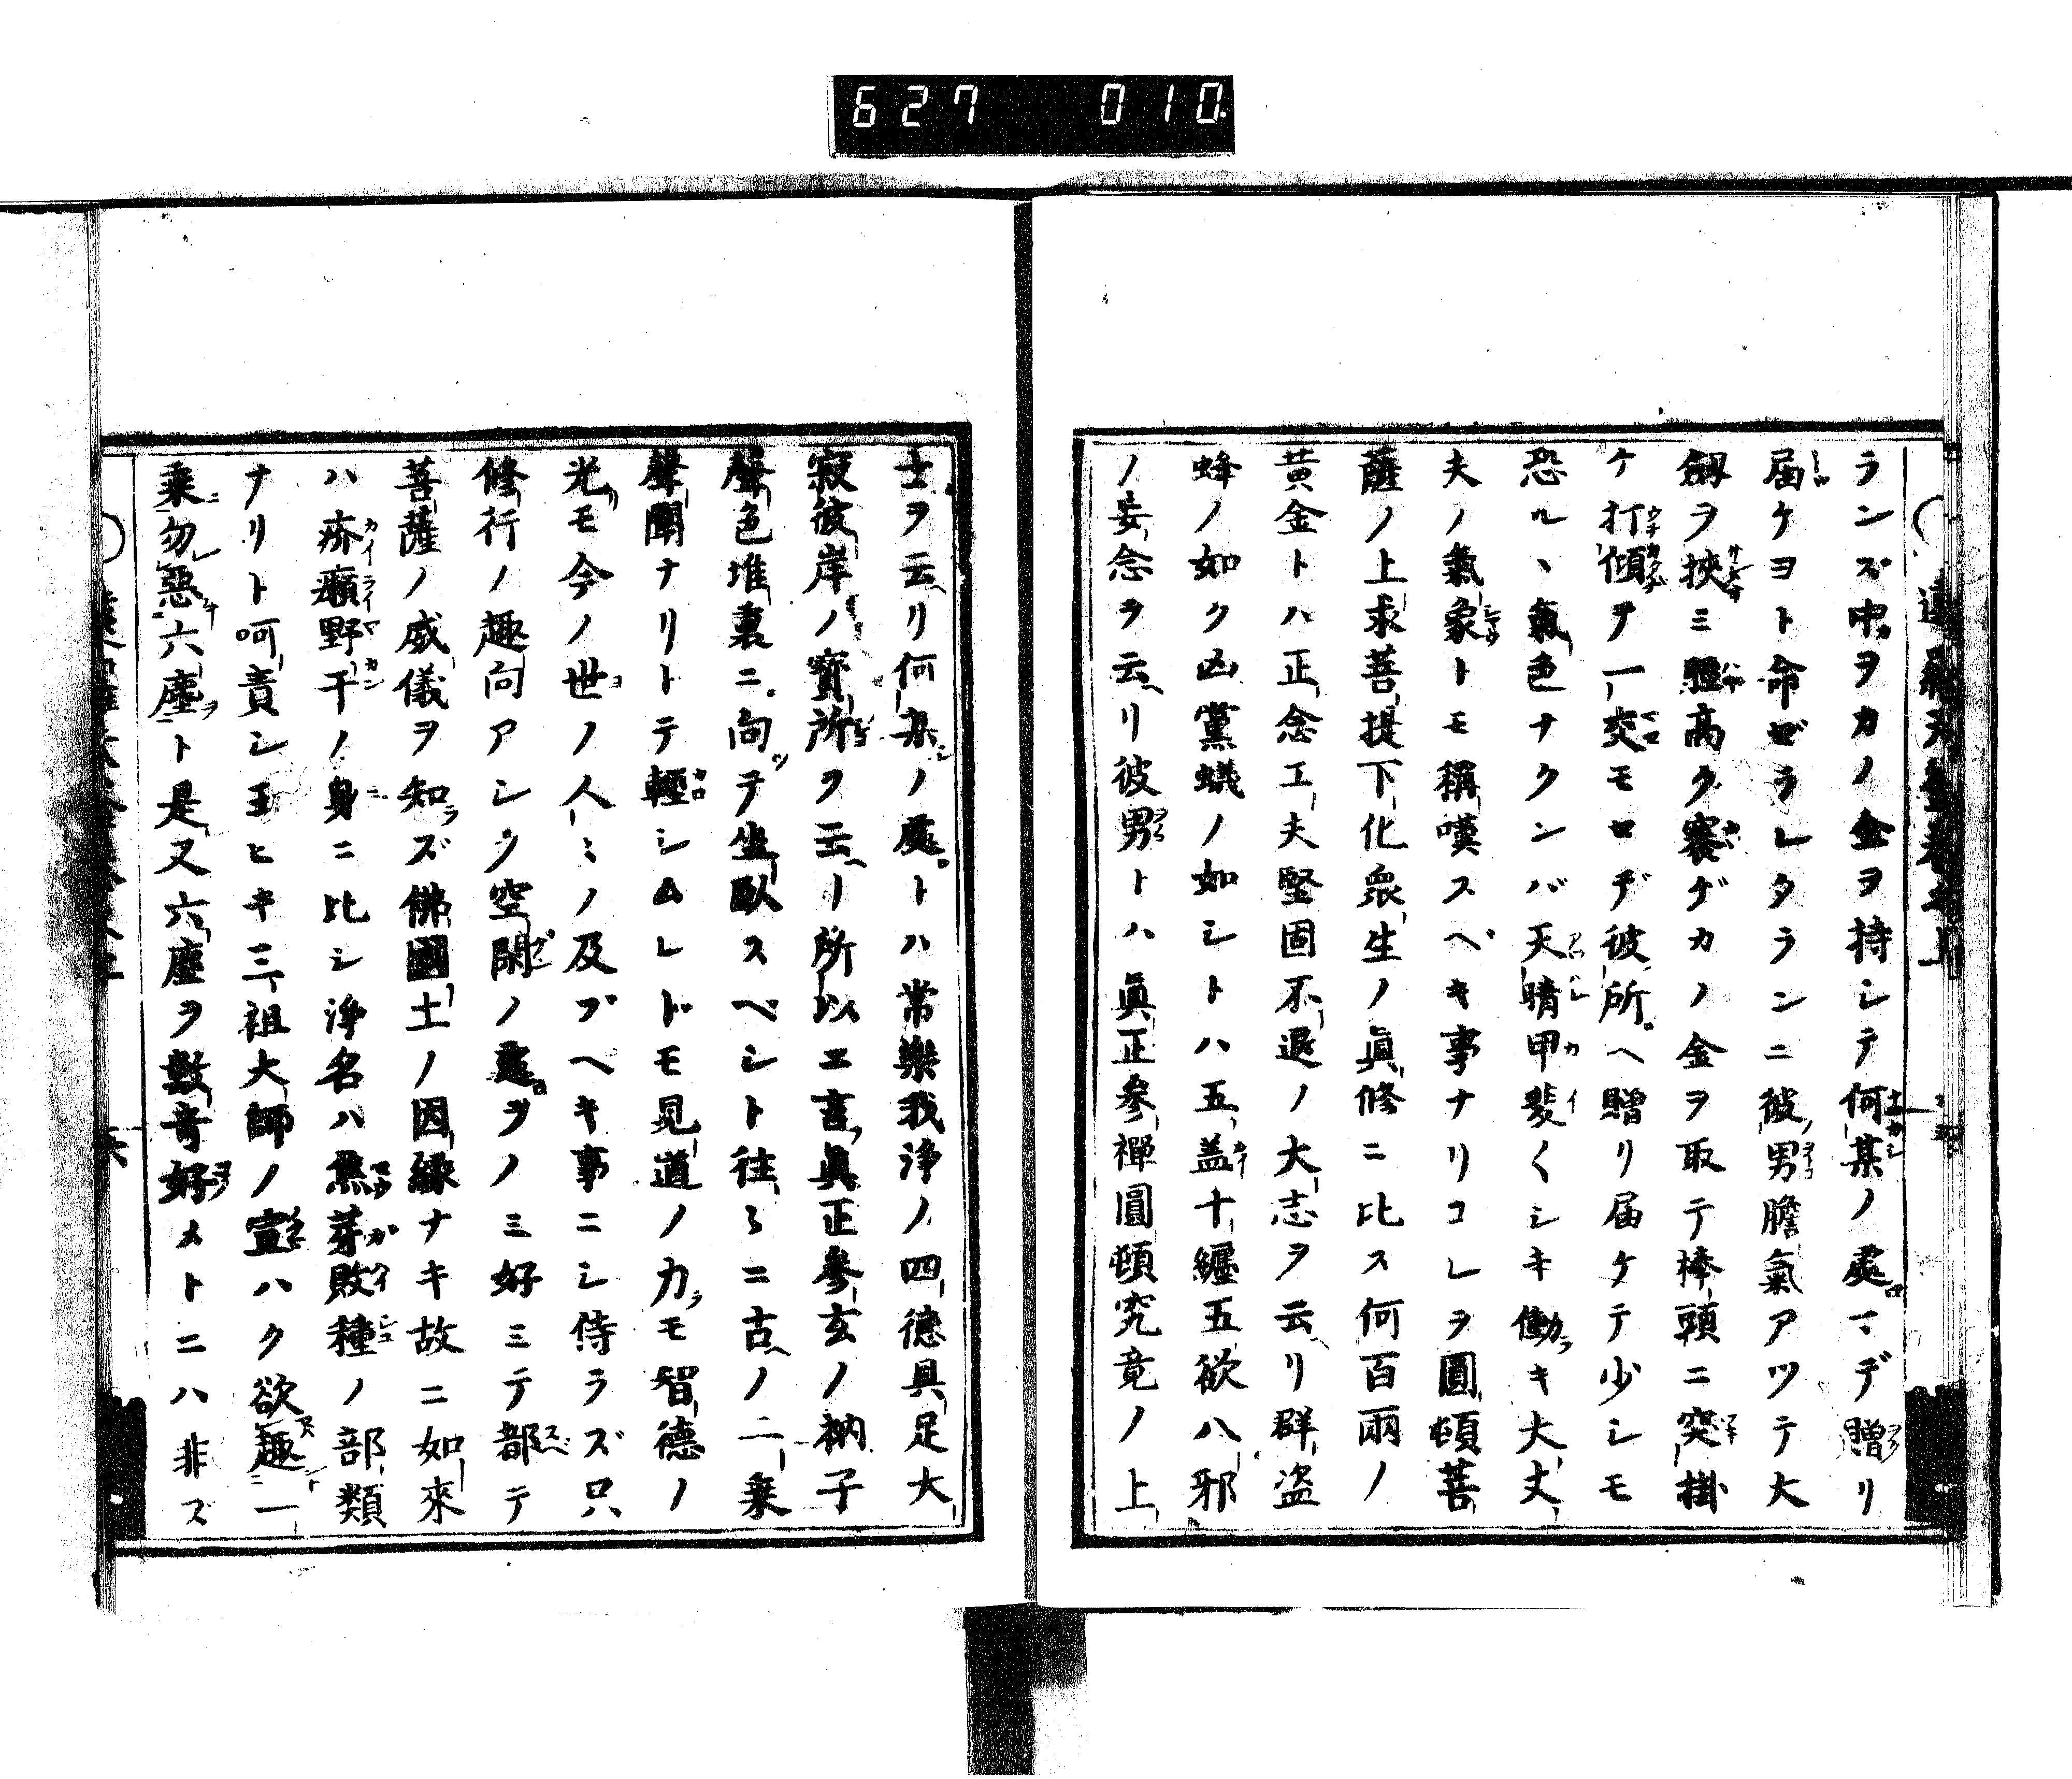 627 010
ランズ中ヲカノ金ヲ持シテ何某ノ處マデ贈リ
届ケヨト命ゼラレタランニ彼男膽氣アツテ大
劔ヲ挾ミ脛高ク褰ゲカノ金ヲ取テ棒頭ニ突掛
ケ打傾ヲ一交モロヂ彼所ヘ贈リ届ケテ少シモ
恐ル丶氣色ナクンバ天晴甲斐〱シキ働キ大丈
夫ノ氣象トモ稱嘆スベキ事ナリコレヲ圓頓菩
薩ノ上求菩提下化衆生ノ眞修ニ比ス何百兩ノ
黄金トハ正念工夫堅固不退ノ大志ヲ云リ群盗
蜂ノ如ク凶黨蟻ノ如シトハ五盖十纒五欲八邪
ノ妄念ヲ云リ彼男トハ眞正參禪圓頓究竟ノ上
士ヲ云リ何某ノ處トハ常樂我淨ノ四德具足大
寂彼岸ノ寳所ヲ云リ所以エ言眞正參玄ノ衲子
聲色堆裏ニ向テ坐臥スベシト往々ニ古ノ二乘
聲聞ナリトテ輕シムレドモ見道ノ力モ智德ノ
光モ今ノ世ノ人〻ノ及ブヘキ事ニシ侍ラズ只
修行ノ趣向アシク空閑ノ處ヲノミ好ミテ都テ
菩薩ノ威儀ヲ知ズ佛國土ノ因緣ナキ故ニ如來
ハ疥癩野干ノ身ニ比シ淨名ハ焦芽敗種ノ部類
ナリト呵責シ玉ヒキ三祖大師ノ宣ハク欲趣一
乘勿惡六塵ト是又六塵ヲ數奇好メトニハ非ズ